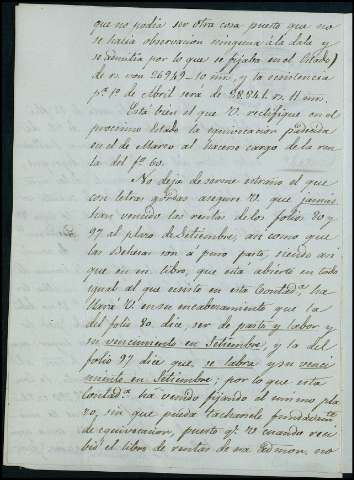 que no podia ser otra cosa puesto que no
se hacia observacion ninguna á la data y
se admitia por lo que se fijaba en el Estado)
de rs. von 26949-10 mrs, y la existencia
pª 1º de Abril será de 28.841. rs. 11 mrs.
Está bien el que V. rectifique en el
procsimo Estado la equivocacion padecida
en el de Marzo al hacerse cargo de la ren
ta del fº 60.
No deja de serme estraño el que
con letras gordas asegure V. que jamas
han vencido las rentas de los folios 80 y
97 al plazo de Setiembre, asi como que
las Dehesas son a puro pasto, siendo asi
que en su libro, que está abierto en todo
igual al que ecsiste en esta Contadª, ha
llará V. en su encabezamiento que la
del folio 80. dice, ser de pasto y labor y
su vencimiento en Setiembre; y la del
folio 97 dice que, se labra y su venci
miento en Setiembre; por lo que esta
Contadª ha venido fijando el mismo pla
zo, sin que pueda tacharsele fundadamte
de equivocacion, puesto qe V. cuando reci
bió el libro de rentas de esa Admon. no